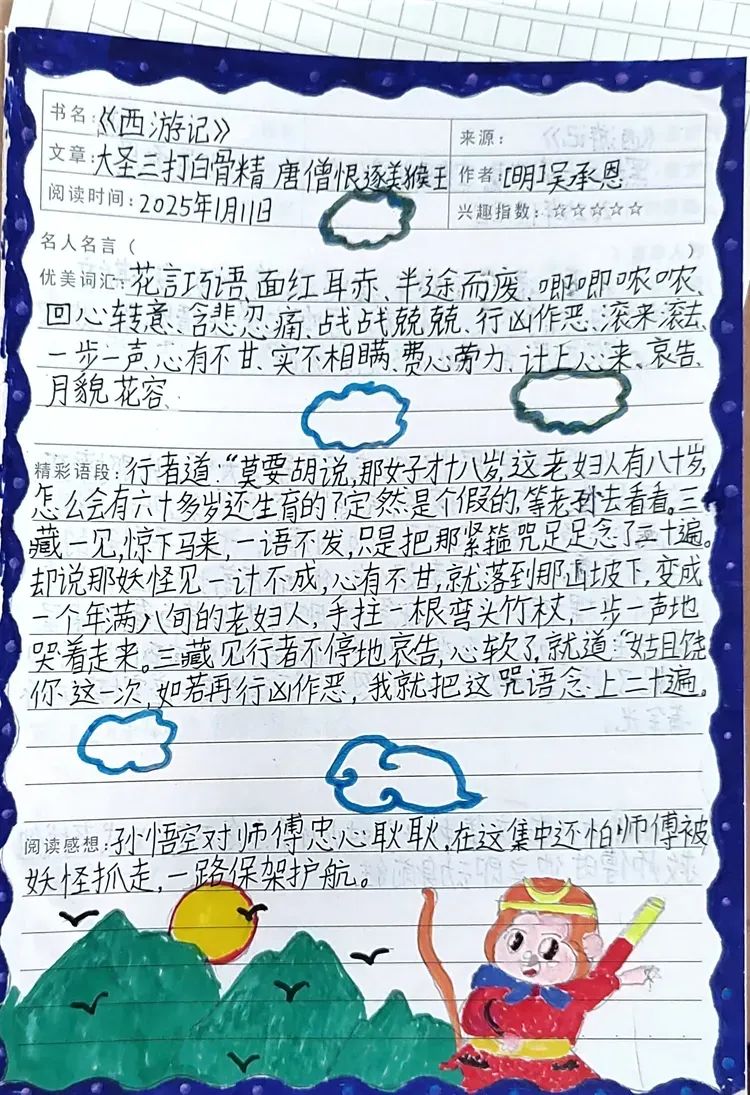 书名：《西游记》
来源：
文章：大圣三打白骨精 唐僧恨逐美猴王
作者：[明]吴承恩
阅读时间：2025年1月11日
兴趣指数：☆☆☆☆☆
名人名言（ ）
优美词汇：花言巧语、面红耳赤、半途而废、唧唧哝哝、
回心转意、含悲忍痛、战战兢兢、行凶作恶、滚来滚去、
一步一声、心有不甘、实不相瞒、费心劳力、计上心来、哀告、
月貌花容、
精彩语段：行者道："莫要胡说，那女子才十八岁，这老妇人有八十岁，
怎么会有六十多岁还生育的？定然是个假的，等老孙去看看。三
藏一见，惊下马来，一语不发，只是把那紧箍咒足足念了二十遍。
却说那妖怪见一计不成，心有不甘，就落到那山坡下，变成
一个年满八旬的老妇人，手拄一根弯头竹杖，一步一声地
哭着走来。三藏见行者不停地哀告，心软了，就道："姑且饶
你这一次，如若再行凶作恶，我就把这咒语念上二十遍。
阅读感想：孙悟空对师傅忠心耿耿，在这集中还怕师傅被
妖怪抓走，一路保架护航。